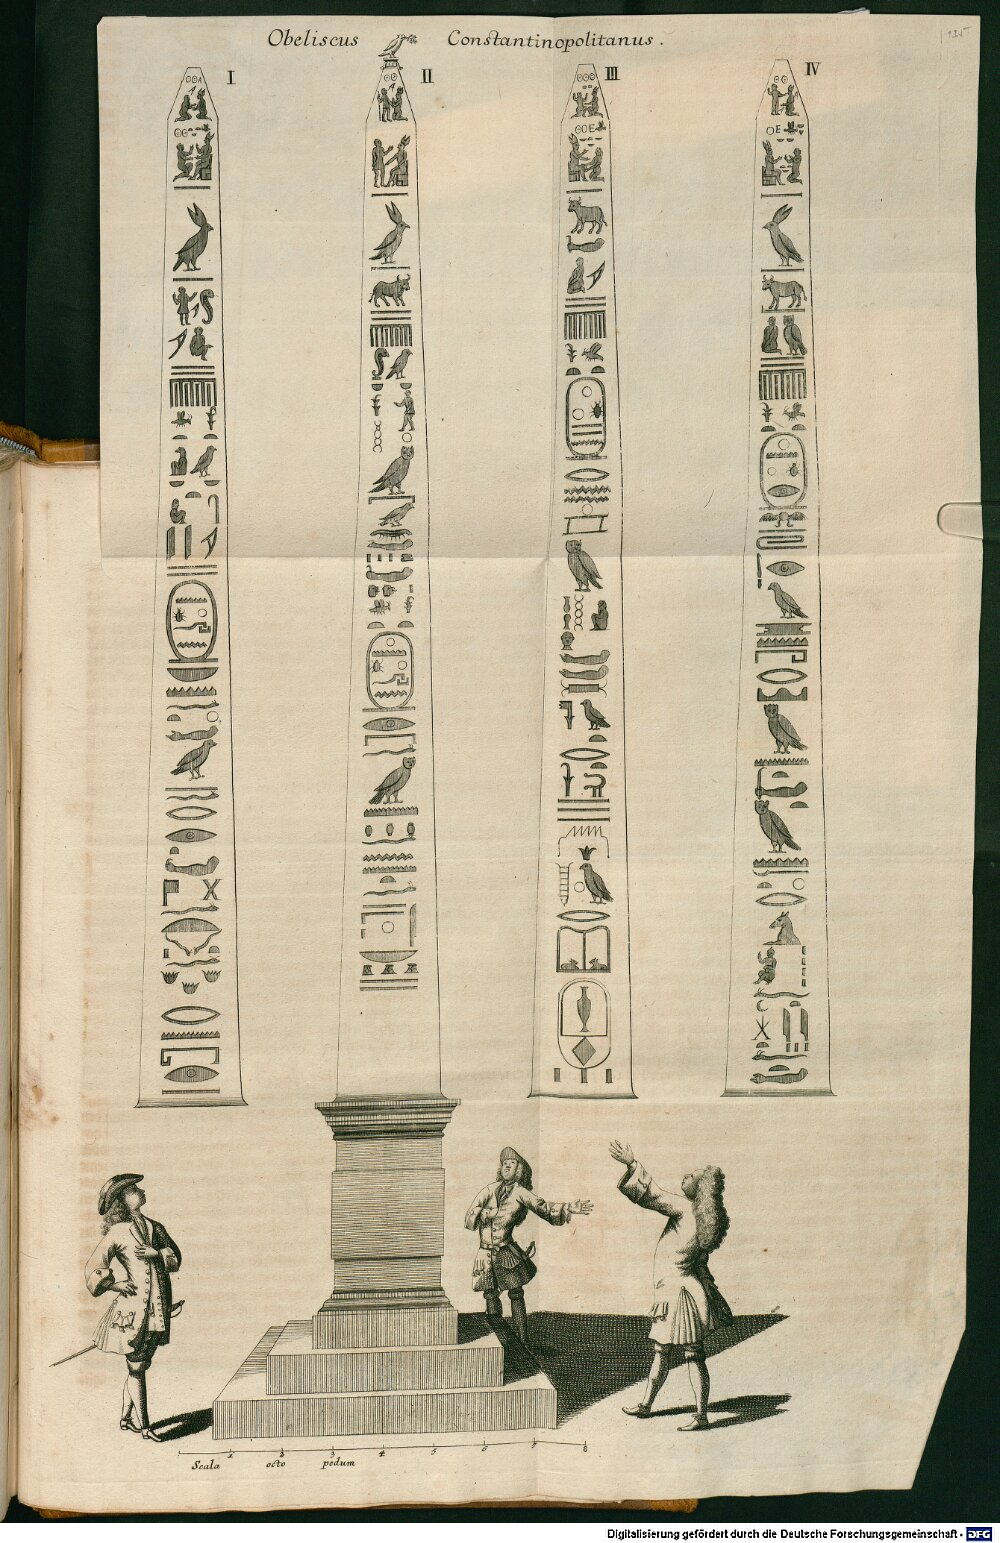 Obeliscus Constantinopolitanus.
I II III IV
1 2 3 4 5 6 7 8
Scala octo pedum
Digitalisierung gefördert durch die Deutsche Forschungsgemeinschaft - DFG